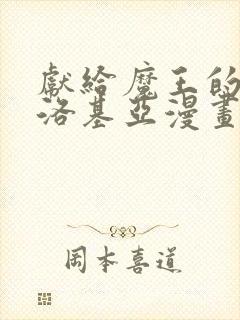 獻給魔王的
洛基亞漫畫
岡本喜道